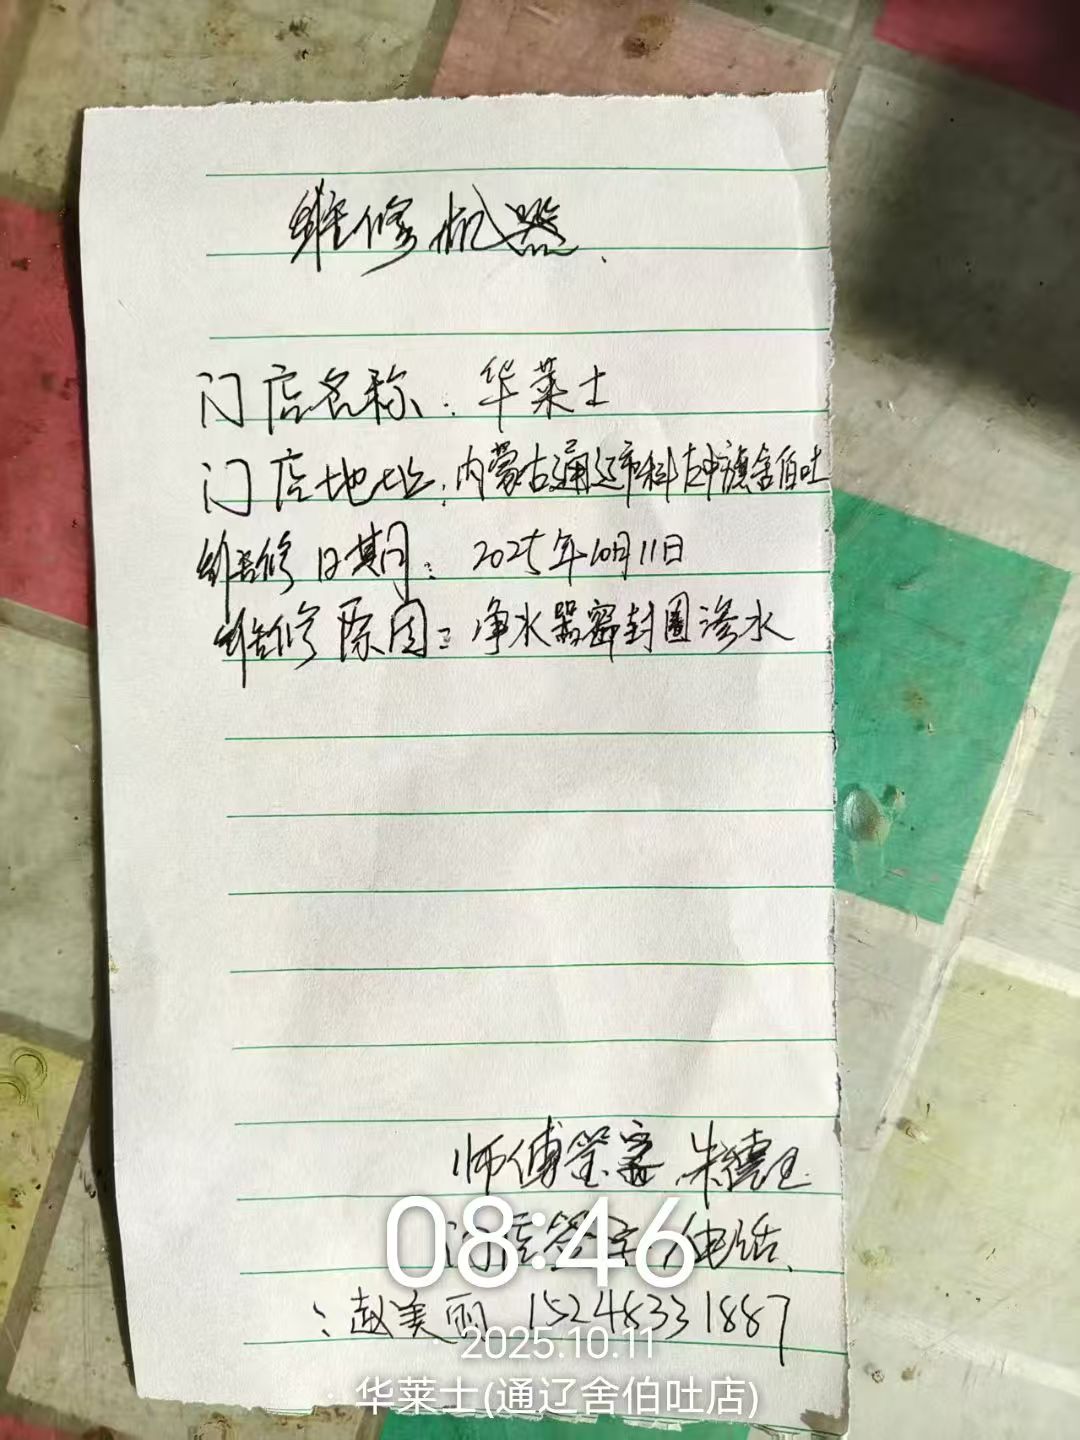 维修机器.
门店名称：华莱士
门店地址：内蒙古通辽市科左中旗舍伯吐
维修日期：2025年10月11日
维修原因：净水器密封圈渗水
师傅签字 朱德玉
门店签字/电话
：赵美丽 15248331887
08:46
2025.10.11
华莱士(通辽舍伯吐店)